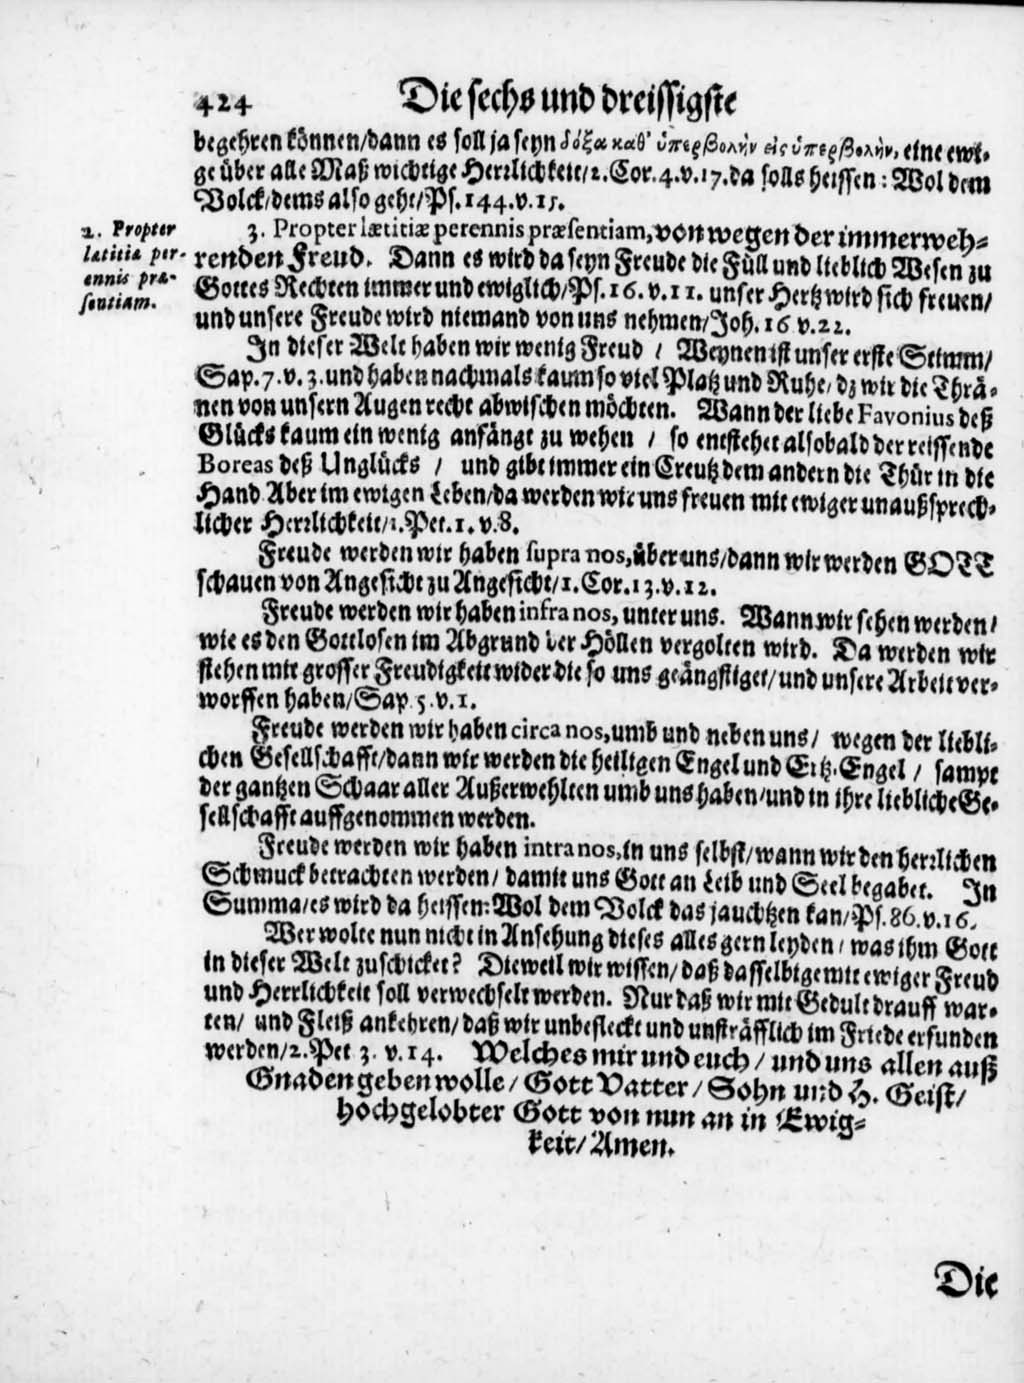 424 Die sechs und dreissigste
begehren können/dann es soll ja seyn δόξα καθ' ὑπερβολὴν εἰς ὑπερβολὴν, eine ewi-
ge über alle Maß wichtige Herrlichkeit/2. Cor. 4. v. 17. da solls heissen: Wol dem
Volck/dems also geht/Ps. 144. v. 15.
2. Propter
lætitiæ per-
ennis præ-
sentiam.
3. Propter lætitiæ perennis præsentiam, von wegen der immerweh-
renden Freud. Dann es wird da seyn Freude die Füll und lieblich Wesen zu
Gottes Rechten immer und ewiglich/Ps. 16. v. 11. unser Hertz wird sich freuen/
und unsere Freude wird niemand von uns nehmen/Joh. 16 v. 22.
In dieser Welt haben wir wenig Freud / Weynen ist unser erste Stimm/
Sap. 7. v. 3. und haben nachmals kaum so viel Platz und Ruhe/ dz wir die Thrä-
nen von unsern Augen recht abwischen möchten. Wann der liebe Favonius deß
Glücks kaum ein wenig anfängt zu wehen / so entstehet alsobald der reissende
Boreas deß Unglücks / und gibt immer ein Creutz dem andern die Thür in die
Hand. Aber im ewigen Leben/da werden wir uns freuen mit ewiger unaußsprech-
licher Herrlichkeit/1. Pet. 1. v. 8.
Freude werden wir haben supra nos, über uns/dann wir werden GOTT
schauen von Angesicht zu Angesicht/1. Cor. 13. v. 12.
Freude werden wir haben infra nos, unter uns. Wann wir sehen werden/
wie es den Gottlosen im Abgrund der Höllen vergolten wird. Da werden wir
stehen mit grosser Freudigkeit wider die so uns geängstiget/und unsere Arbeit ver-
worffen haben/Sap. 5. v. 1.
Freude werden wir haben circa nos, umb und neben uns/ wegen der liebli-
chen Gesellschafft/dann wir werden die heiligen Engel und Ertz-Engel / sampt
der gantzen Schaar aller Außerwehlten umb uns haben/und in ihre liebliche Ge-
sellschafft auffgenommen werden.
Freude werden wir haben intra nos, in uns selbst/wann wir den herrlichen
Schmuck betrachten werden/ damit uns Gott an Leib und Seel begabet. In
Summa/es wird da heissen: Wol dem Volck das jauchtzen kan/Ps. 86. v. 16.
Wer wolte nun nicht in Ansehung dieses alles gern leyden/ was ihm Gott
in dieser Welt zuschicket? Dieweil wir wissen/ daß dasselbige mit ewiger Freud
und Herrlichkeit soll verwechselt werden. Nur daß wir mit Gedult drauff war-
ten/ und Fleiß ankehren/ daß wir unbefleckt und unsträfflich im Friede erfunden
werden/2. Pet 3. v. 14. Welches mir und euch / und uns allen auß
Gnaden geben wolle / Gott Vatter / Sohn und H. Geist/
hochgelobter Gott von nun an in Ewig-
keit/ Amen.
Die